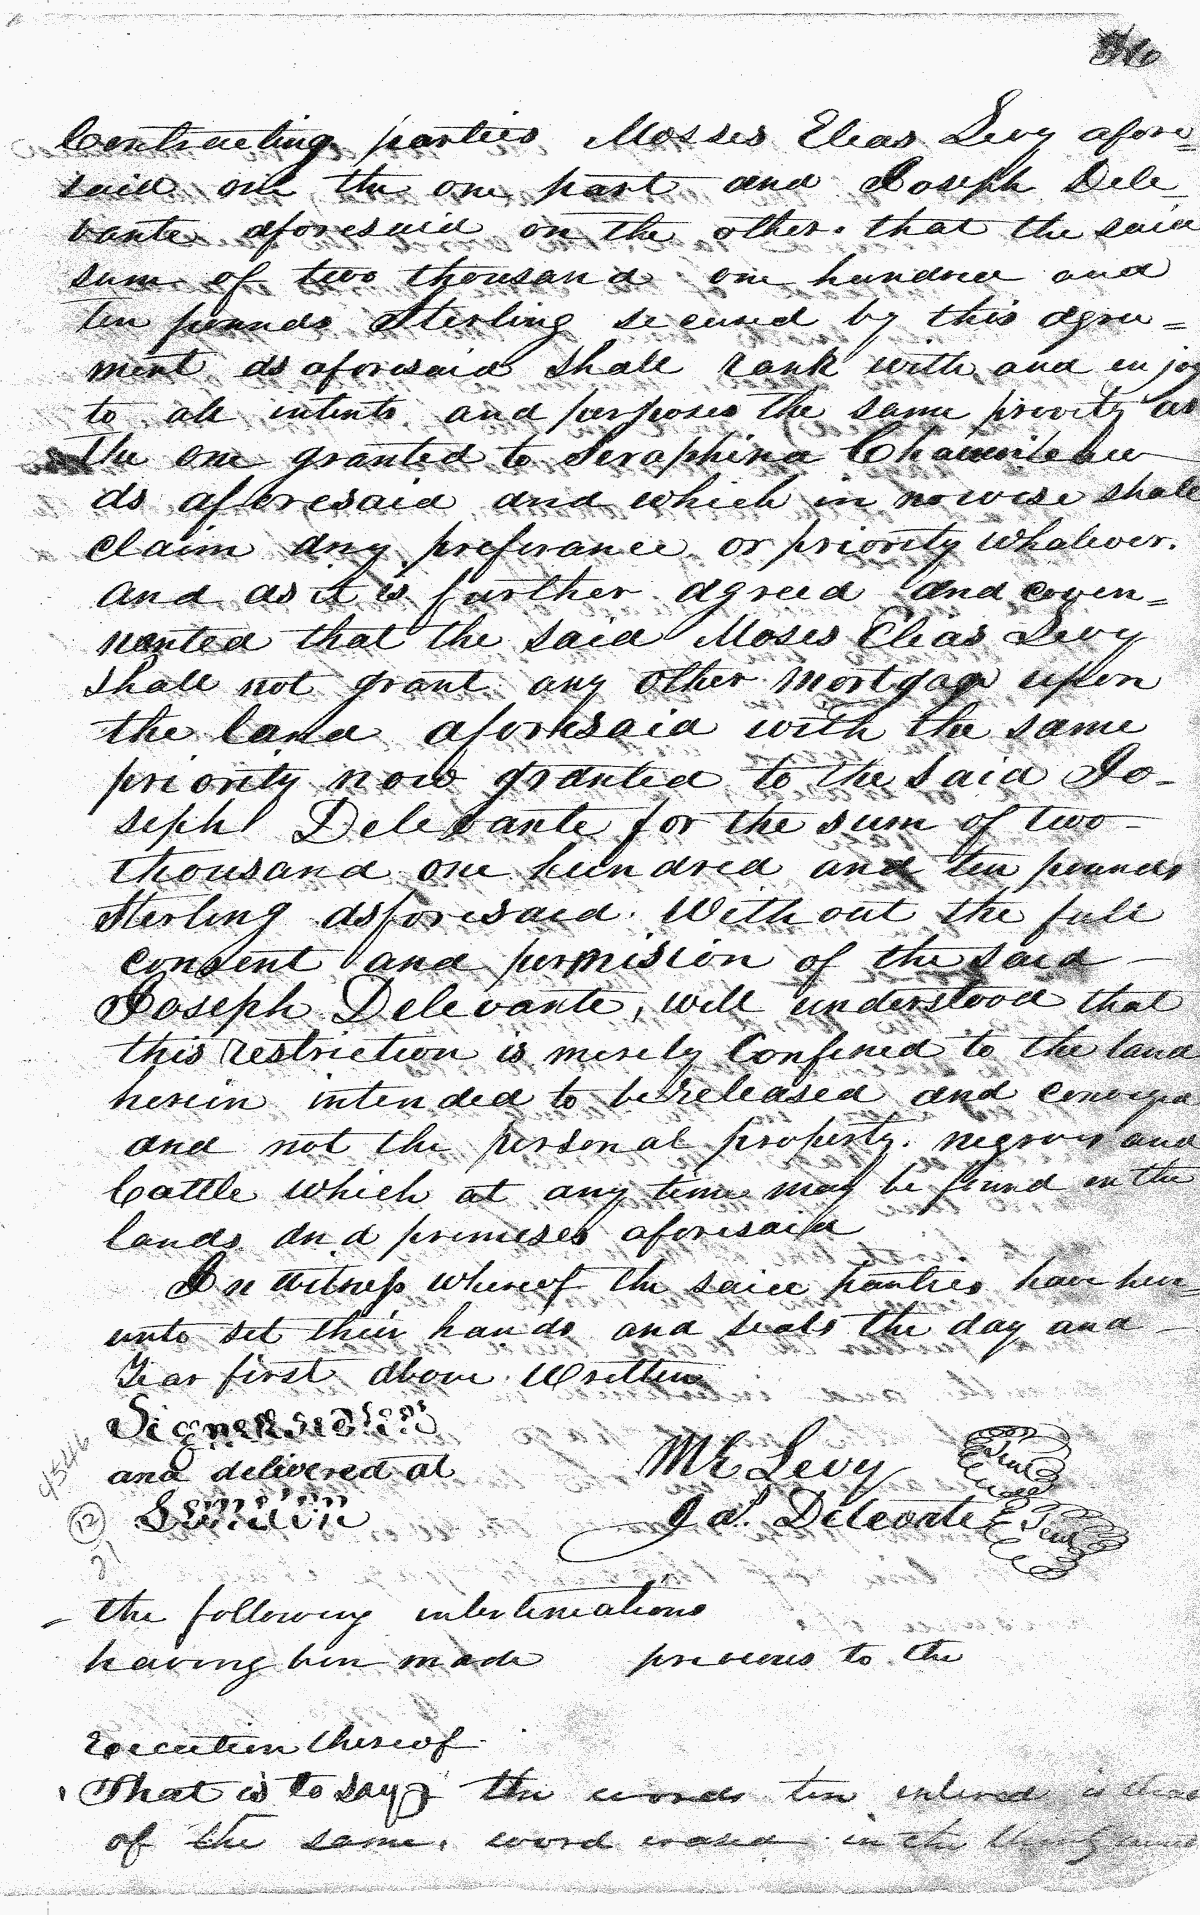 Contracting parties Mosses Elias Levy afore=
said on the one part and Joseph Dele_
vante aforesaid on the other. that the said
sum of two thousand one hundred and
ten pounds Sterling secured by this agree=
ment as aforesaid shall rank with and enjoy
to all intents and purposes the same priority as
the one granted to Seraphina
as aforesaid and which in nowise shall
claim any preferance or priority whatever.
and as it is further agreed and coven=
nanted that the said Moses Elias Levy
shall not grant any other mortgage upon
the land aforesaid with the same
priority now granted to the said Jo-
seph Delevante for the sum of two-
thousand one hundred and ten pounds
Sterling as aforesaid. Without the full
consent and permision of the said -
Joseph Delevante, will understood that
this restriction is merely Confined to the land
herein intended to be released and conveyed
and not the personal property. negroes and
Cattle which at any time may be found in the
lands and premises aforesaid
In witness whereof the said parties have here=
unto set their hands and seals the day and -
Year first above Written
Signed sealed
and delivered at
London
M E Levy Seal
Jos. Delevante Seal
4546
12
21
- the following interlineations
having been made previous to the
Execution thereof
That is to say the words ten entered instead
of the same, word erased in the